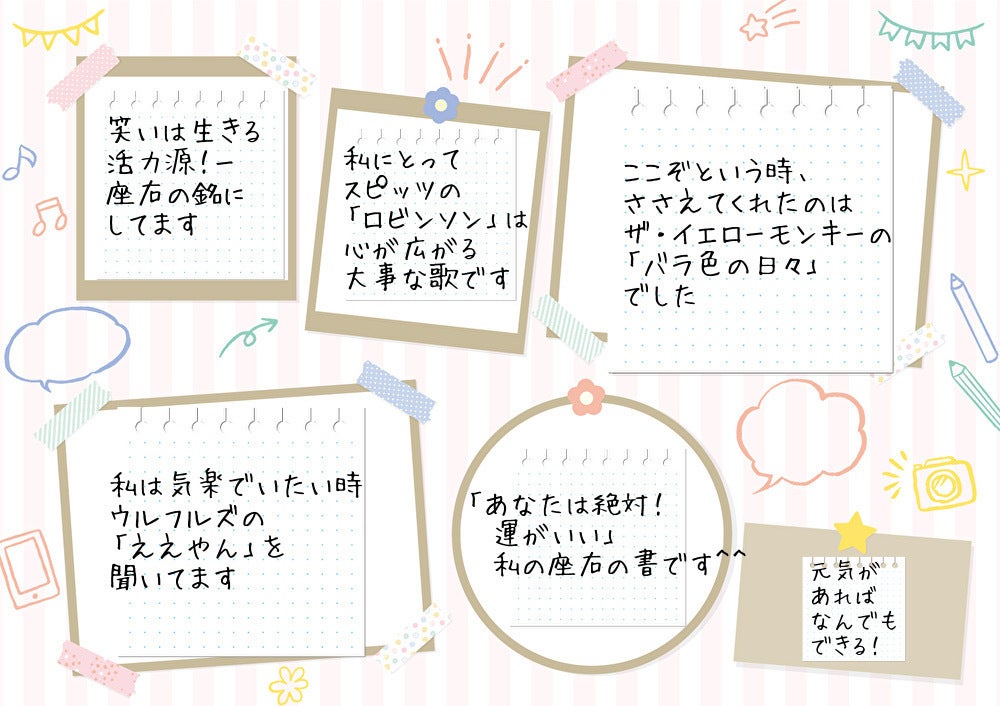 笑いは生きる
活力源!ー
座右の銘に
してます
私にとって
スピッツの
「ロビンソン」は
心が広がる
大事な歌です
ここぞという時、
ささえてくれたのは
ザ・イエローモンキーの
「バラ色の日々」
でした
私は気楽でいたい時
ウルフルズの
「ええやん」を
聞いてます
「あなたは絶対!
運がいい」
私の座右の書です^^
元気が
あれば
なんでも
できる!